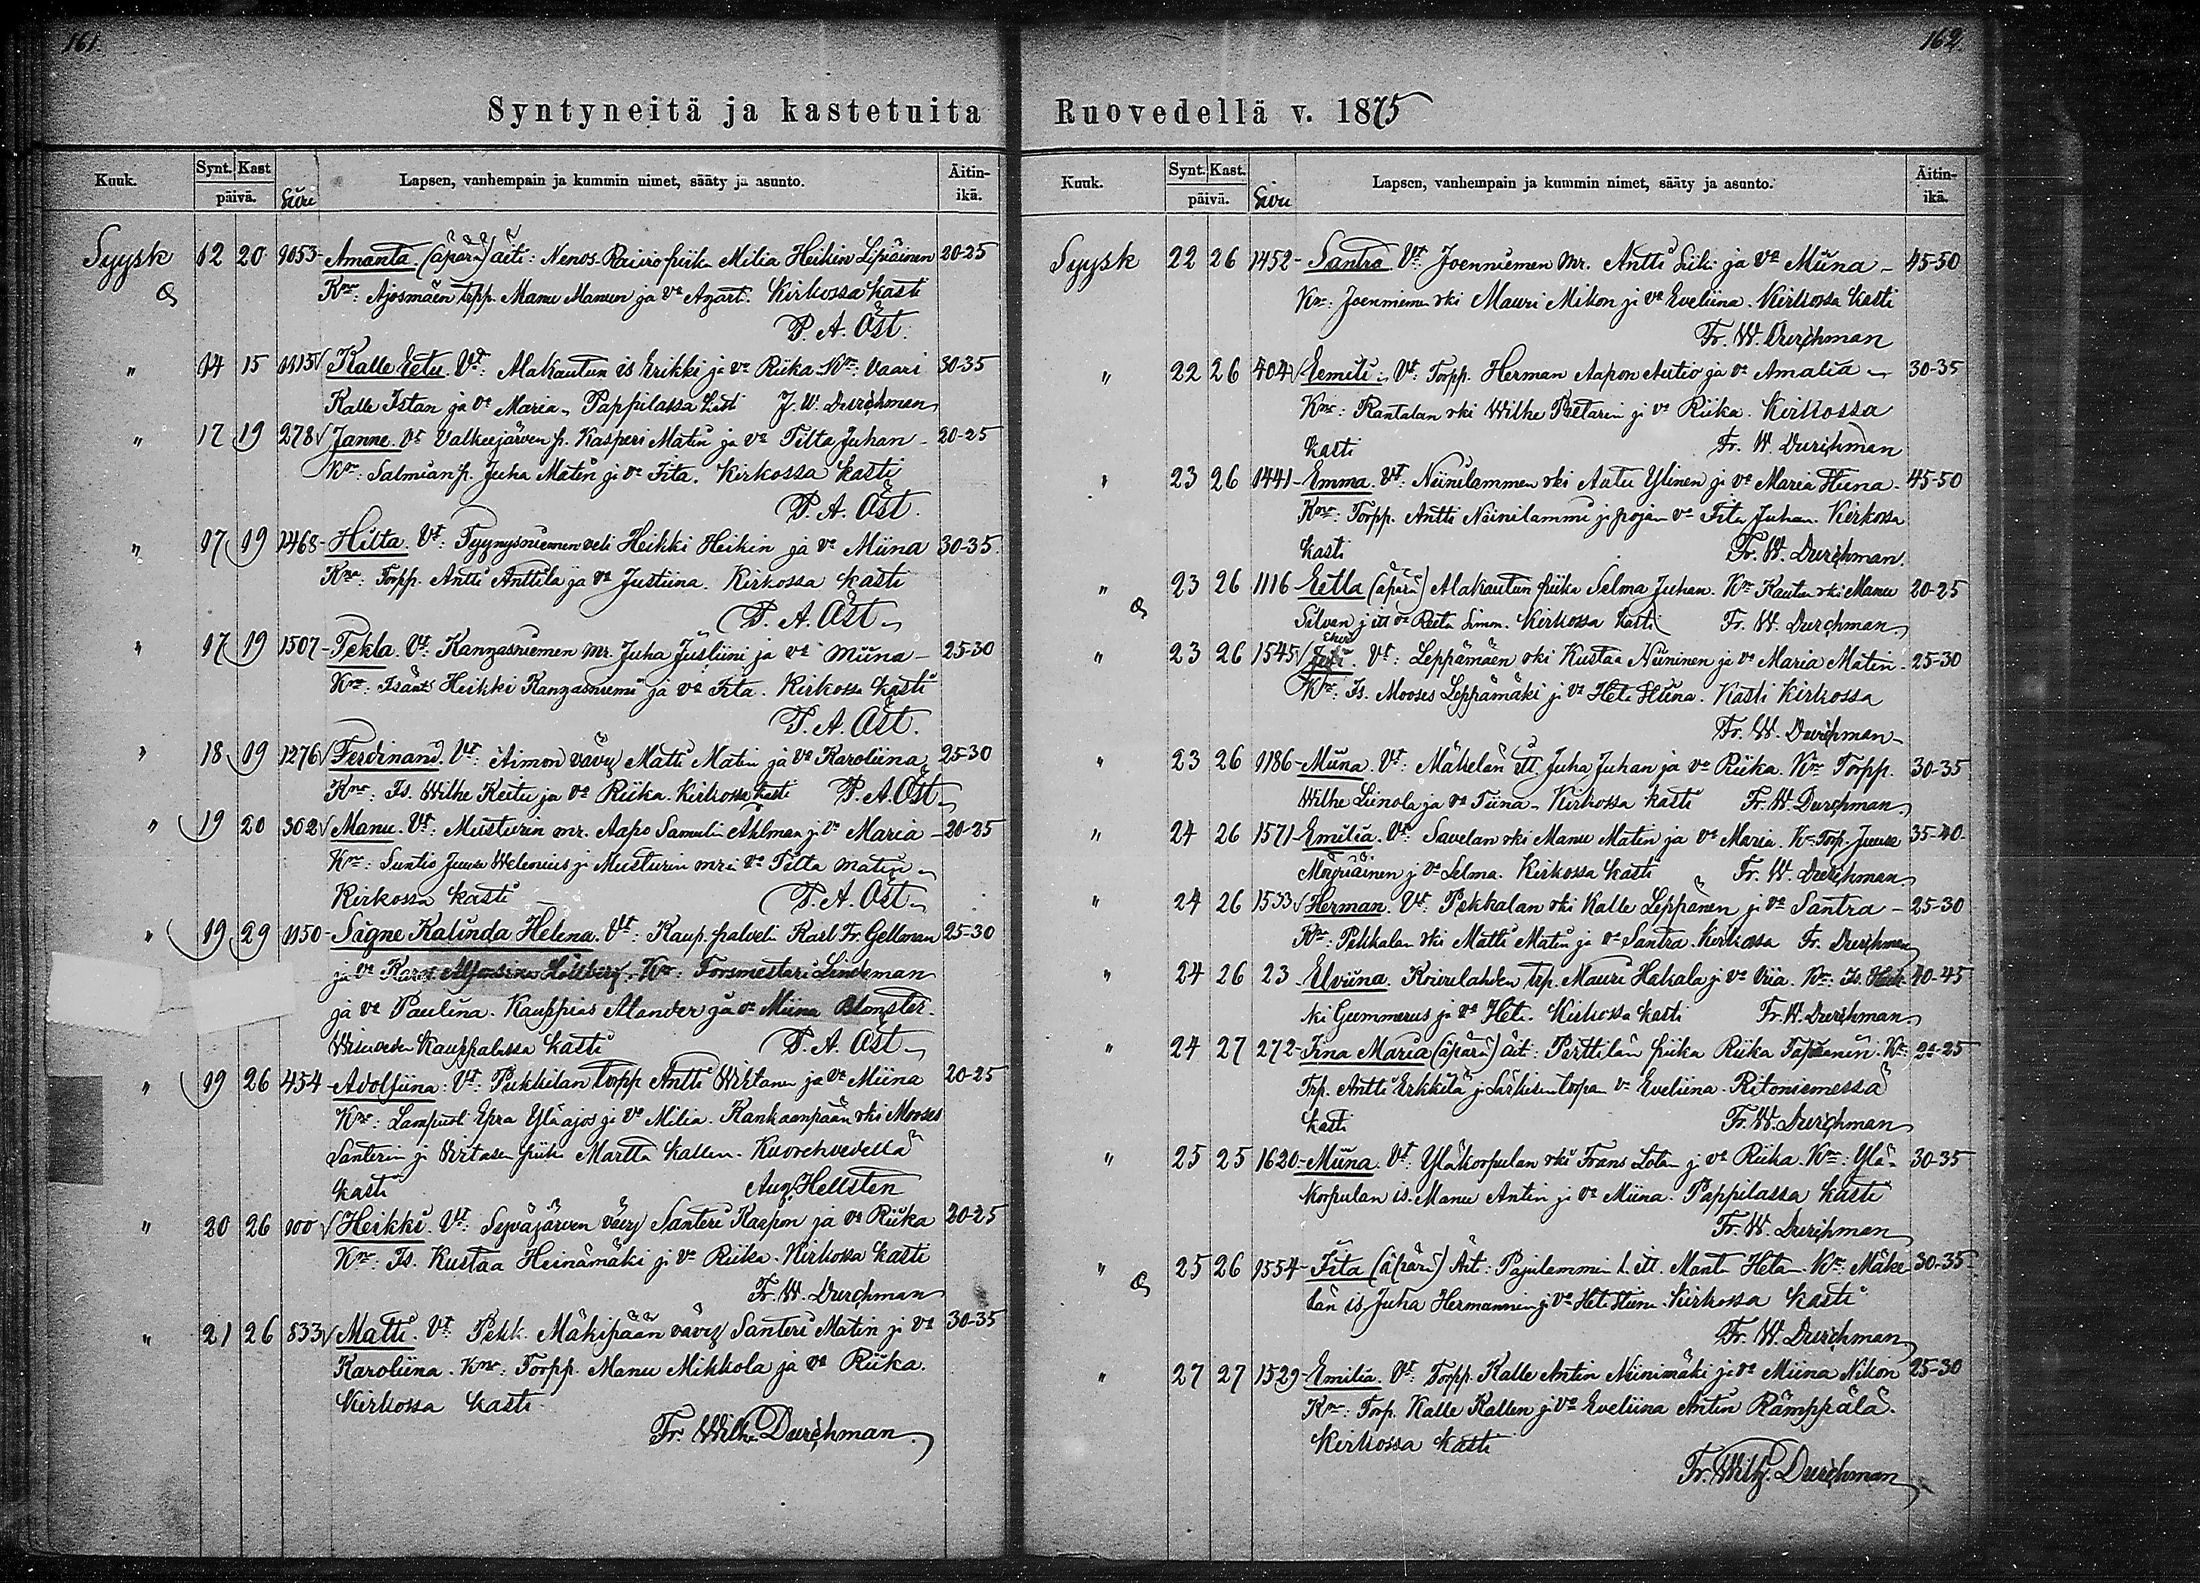 161.
Syntyneitä ja kastetuita
Kuuk. Synt. Kast päivä. Sivu Lapsen, vanhempain ja kummin nimet, sääty ja asunto. Äitin-ikä.
Syysk 12 20 1053- Amanta. (äpärä) äiti: Nenos-Raiviö piika Milia Heikin Lipiäinen 20-25
Kmr: Ajosmäen trpp. Manu Manun ja va Agart. Kirkossa kasti
P. A. Öst.
" 14 15 1115 √ Kalle Eetu. Vt: Alakautun is Erikki ja va Riika Kmr: Vaari 30-35
Kalle Istan ja va Maria. Pappilassa kasti J. W. Durchman
" 17 19 278 √ Janne. Vt Valkeejärven p. Kasperi Matin ja va Tilta Juhan - 20-25
Kmr: Salmian p. Juha Matin ji va Fita. Kirkossa kasti
P. A. Öst.
" 17 19 1468- Hilta. Vt: Tyynysniemen veli Heikki Heikin ja va Miina 30-35
Kmr: Torpp. Antti Anttila ja va Justiina. Kirkossa kasti
P. A. Öst
" 17 19 1507- Tekla. Vt: Kangasniemen mr. Juha Justiini ja va Miina - 25-30
Kmr: Isäntä Heikki Kangasniemi ja va Fita. Kirkossa kasti
P. A. Öst.
" 18 19 1276 √ Ferdinand. Vt: Aimon vävy Matti Matin ja va Karoliina 25-30
Kmr: Is. Wilhe Keitu ja va Riika. Kirkossa kasti P. A. Öst
" 19 20 302 √ Manu. Vt: Musturin mr. Aapo Samulin Ahlman ji va Maria - 20-25
Kmr: Suntio Juuse Welenius ji Musturin mrin va Tilta Matin
Kirkossa kasti P. A. Öst
" 19 29 1150- Signe Kalinda Helena. Vt: Kaup. palveli Karl Fr. Gellman 25-30
ja va Alfonsina Hållberg. Kmr: Forsmestari Lindeman
ja va Paulina. Kauppias Alander ja va Miina Blomster.
Wisuveden Kauppalassa kasti P. A. Öst
" 19 26 454- Adolfiina: Vt: Pukkilan torpp Antti Wirtanen ja va Miina 20-25
Kmr: Lampuoti Epra Yläajos ji va Milia. Kankaanpään rki Mooses
Santerin ji Virtasen piika Martta Kallen. Kuorehvedellä
kasti Aug. Hellsten
" 20 26 100 √ Heikki. Vt: Sepäjärven vävy Santeri Kaapon ja va Riika 20-25
Kmr: Is. Kustaa Heinämäki ji va Riika. Kirkossa kasti
Fr. W. Durchman
" 21 26 833 √ Matti. Vt: Pekk. Mäkipään vävy Santeri Matin ji va 30-35
Karoliina. Kmr: Torpp. Manu Mikkola ja va Riika.
Kirkossa kasti
Fr. Wilh. Durchman
162.
Ruovedellä v. 1875
Kuuk. Synt. Kast. päivä. Sivu Lapsen, vanhempain ja kummin nimet, sääty ja asunto. Äitin-ikä.
Syysk 22 26 1452- Santra Vt: Joenniemen mr. Antti Siiki ja va Miina - 45-50
Kmr: Joenniemen rki Mauri Mikon ji va Eveliina. Kirkossa kasti
Fr. W. Durchman
" 22 26 404 √ Eemili. Vt: Torpp. Herman Aapon Autio ja va Amalia 30-35
Kmr: Rantalan rki Wilhe Pietarin ji va Riika. Kirkossa
kasti Fr. W. Durchman
" 23 26 1441- Emma. Vt: Niinilammen rki Aatu Ylinen ji va Maria Stiina. 45-50
Kmr: Torpp. Antti Niinilammi ji pojan va Fita Juhan. Kirkossa
kasti Fr. W. Durchman.
" 23 26 1116 Eetla (äpärä) Alakautun piika Selma Juhan. Kmr Kautun rki Manu 20-25
Silvan ji itl va Reeta Simon. Kirkossa kasti Fr. W. Durchman
" 23 26 1545 √ Vt: Leppämäen rki Kustaa Niininen ja va Maria Matin - 25-30
Kmr: Is. Mooses Leppämäki ji va Heta Stiina. Kasti Kirkossa
Fr. W. Durchman
" 23 26 1186- Miina. Vt: Mäkelän itl. Juha Juhan ja va Riika. Kmr Torpp. 30-35
Wilhe Liinola ja va Tiina. Kirkossa kasti Fr. W. Durchman
" 24 26 1571- Emilia. Vt: Savelan rki Manu Matin ja va Maria. Kmr Torp. Juuse 35-40
Möyriäinen ji va Selma. Kirkossa kasti Fr. W. Durchman
" 24 26 1533 √ Herman. Vt: Pekkalan rki Kalle Leppänen ji va Santra - 25-30
Kmr: Pekkalan rki Matti Matin ja va Santra. Kirkossa Fr. Durchman
" 24 26 23 - Elviina. Koivulahden trp. Mauri Hakala ji va Viia. Kmr: Is. Heik 40-45
ki Gummerus ja va Heta. Kirkossa kasti Fr. W. Durchman
" 24 27 272- Fina Maria (äpärä) äit: Perttilän piika Riika Tapanin. Kmr: 21-25
Trp. Antti Erkkilä ji Särkisen torpan va Eveliina. Ritoniemessä
kasti Fr. W. Durchman
" 25 25 1620- Miina. Vt: Yläkorpulan rki Frans Lotan ji va Riika. Kmr: Ylä- 30-35
korpulan is. Manu Antin ji va Miina. Pappilassa kasti
Fr. W. Durchman
" 25 26 1554- Fita (äpärä) Äit: Pajulammin l. itl. Manta Hetan. Kmr: Mäke 30-35
län is Juha Hermannin ji va Heta Stiina. Kirkossa kasti
Fr. W. Durchman
" 27 27 1529- Emilia. Vt: Torpp. Kalle Antin Niinimäki ji va Miina Nikon 25-30
Kmr: Torp. Kalle Kallen ji va Eveliina Antin Rämppälä.
Kirkossa kasti
Fr. Wilh. Durchman